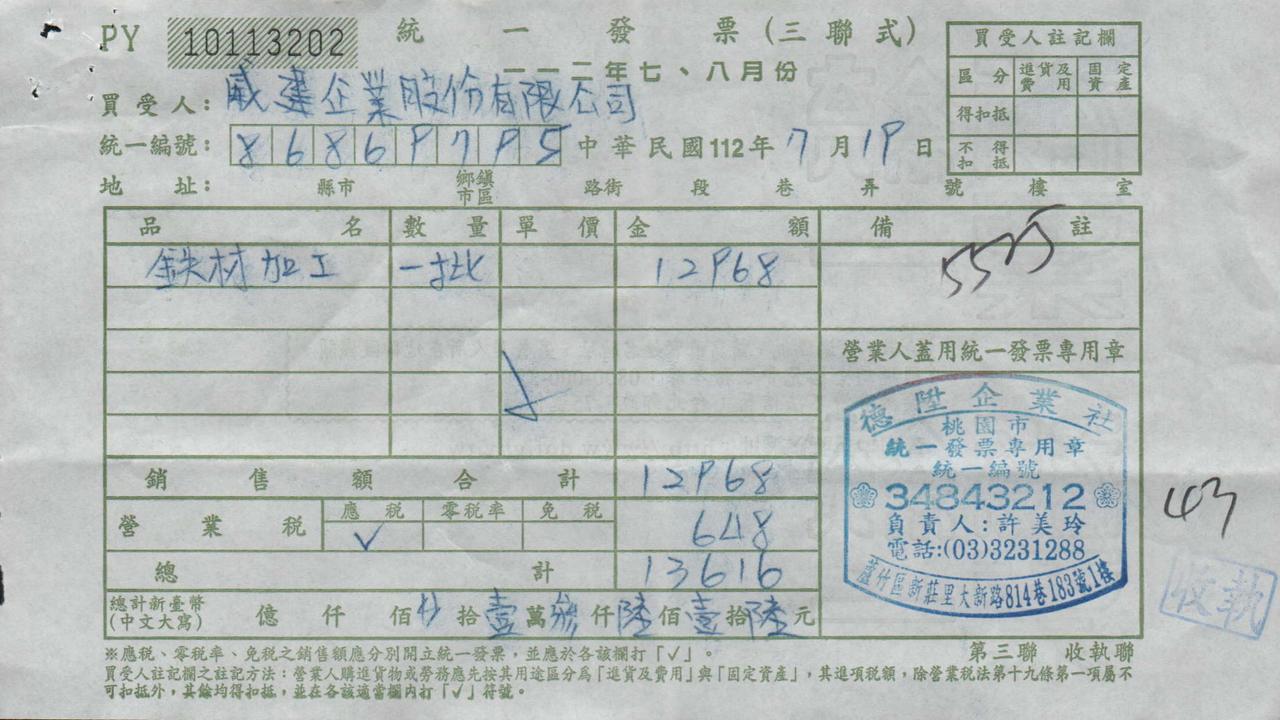 PY 10113202 統一發票(三聯式)
一一二年七、八月份
買受人: 威達企業股份有限公司
統一編號: 86869795 中華民國112年7月19日
地址: 縣市 鄉鎮市區 路街 段 巷 弄 號 樓 室
買受人註記欄
區分 進貨及費用 固定資產
得扣抵
不得扣抵
品名 數量 單價 金額 備註
鉄材加工 一批 12968
營業人蓋用統一發票專用章
銷售額合計 12968
營業稅 應稅 零稅率 免稅 648
✓
總計 13616
總計新臺幣(中文大寫) 億 仟 佰 拾壹萬參仟陸佰壹拾陸元
德陞企業社
桃園市
統一發票專用章
統一編號
34843212
負責人:許美玲
電話:(03)3231288
蘆竹區新莊里大新路814巷183號1樓
收執
第三聯 收執聯
※應稅、零稅率、免稅之銷售額應分別開立統一發票,並應於各該欄打「✓」。
買受人註記欄之註記方法:營業人購進貨物或勞務應先按其用途區分為「進貨及費用」與「固定資產」,其進項稅額,除營業稅法第十九條第一項屬不
可扣抵外,其餘均得扣抵,並在各該適當欄內打「✓」符號。